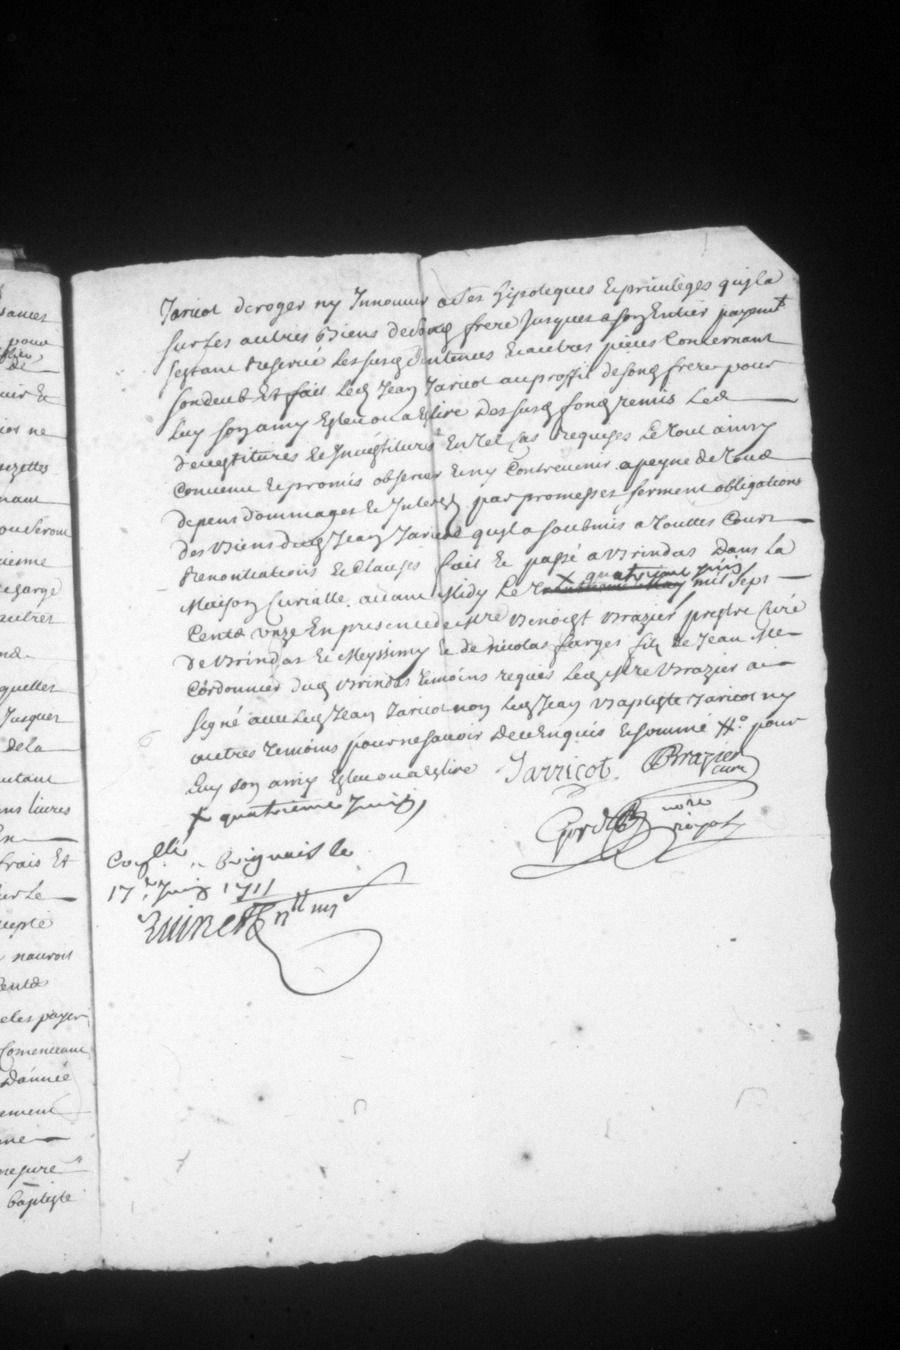 Jaricot deroger ny Innouuer a Ses hipoteques Et priuileges quil a
sur Les autres Biens dudit son frere Jusques a son Entier payemt
sestant Reserué les susd Sentences Et autres pieces Concernant
son deub Et fait Led Jean Jaricot au proffit de sond frere pour
luy son amy Esleu ou a Eslire des susd fond remis Led
deuestitures Et Inuestitures En tel Cas requises Le tout ainsy
Conuenu Et promis obseruer Et ny Contreuenir a peyne de tous
depens dommages Et Interest par promesses serment obligations
des Biens dud Jean Jaricot quil a soubmis a touttes Cours
Renontiations Et Clauses fait Et passé a Brindas Dans la
x quatrieme juin
Maison Curialle auant Midy Le mil sept
Cents unze En presence de Mre Benoist Brazier prestre Curé
de Brindas Et Meyssimy Et de nicolas farges fils de Jean Me
Cordonnier dud Brindas temoins requis Led Mre Brazier a
signé auec Led Jean Jaricot non Led Jean Baptiste Jaricot ny
autres temoins pour ne sauoir De ce Enquis Et sommé pour
Luy son amy Esleu ou a Eslire
x quatrieme Juin
Jarricot
Brazier
curé
nore
royal
Conllé a Brignais le
17e Juin 1711
sances
pour
de
uir Et
ion ne
nant
ou seront
autres
quelles
Jusques
de la
autant
ens liures
En
frais Et
sur Le
nauroit
Cents
et les payer
Commencant
Dannée
ement
mesure
baptiste